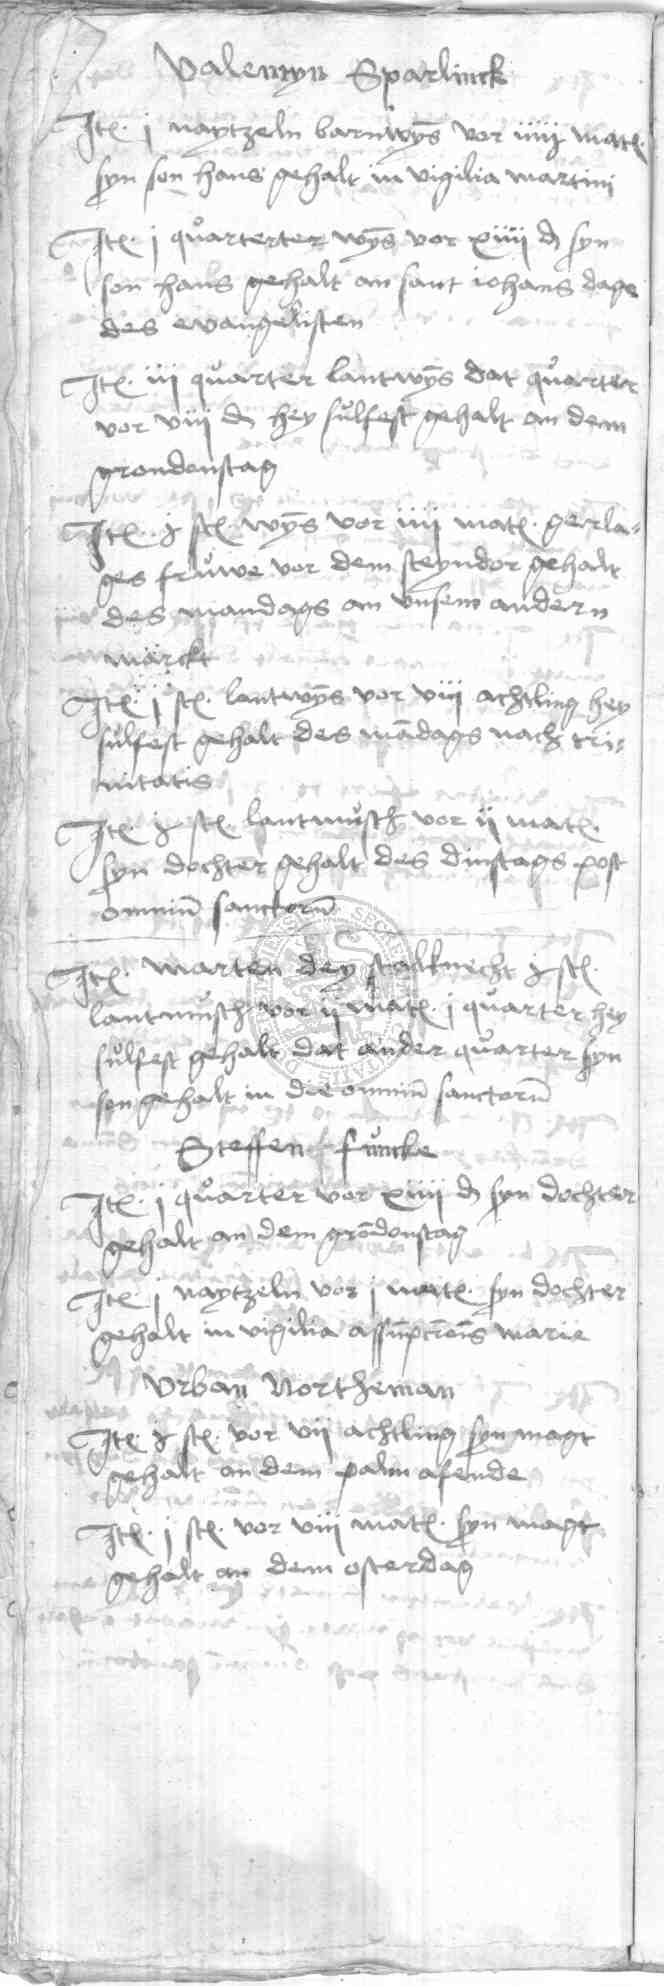 Valentyn Sparlinck
Itē. j naytzeln barnwȳs vor iiij matē.
syn son hans gehalt in vigilia martini
Itē. j quarterter wȳs vor xiiij d syn
son hans gehalt an sant iohans dage
des evangelisten
Itē. iij quarter lantwȳs dat quarter
vor viij d hey sůlfest gehalt an dem
grondonstag
Itē. j stē. wȳs vor iiij matē. gerla-
ges frůwe vor dem steyndor gehalt
des mandags an vnsem andern
marckt
Itē. j stē. lantwȳs vor viij achtling hey
sůlfest gehalt des mādags nach tri-
nitatis
Itē. j stē. lantmůsch vor ij matē.
syn dochter gehalt des dinstags post
omniū sanctorū
Itē. marten dey stalknecht j stē.
lantmůsch vor ij matē. j quarter hey
sůlfest gehalt dat ander quarter syn
son gehalt in die omniū sanctorū
Steffen fůncke
Itē. j quarter vor xiiij d syn dochter
gehalt an dem grōdonstag
Itē. j naytzeln vor j matē. syn dochter
gehalt in vigilia assūpcōnis marie
Vrban Northeman
Itē j stē. vor vij achtling syn magt
gehalt an dem palm afende
Itē. j stē. vor viij matē. syn magt
gehalt an dem osterdag